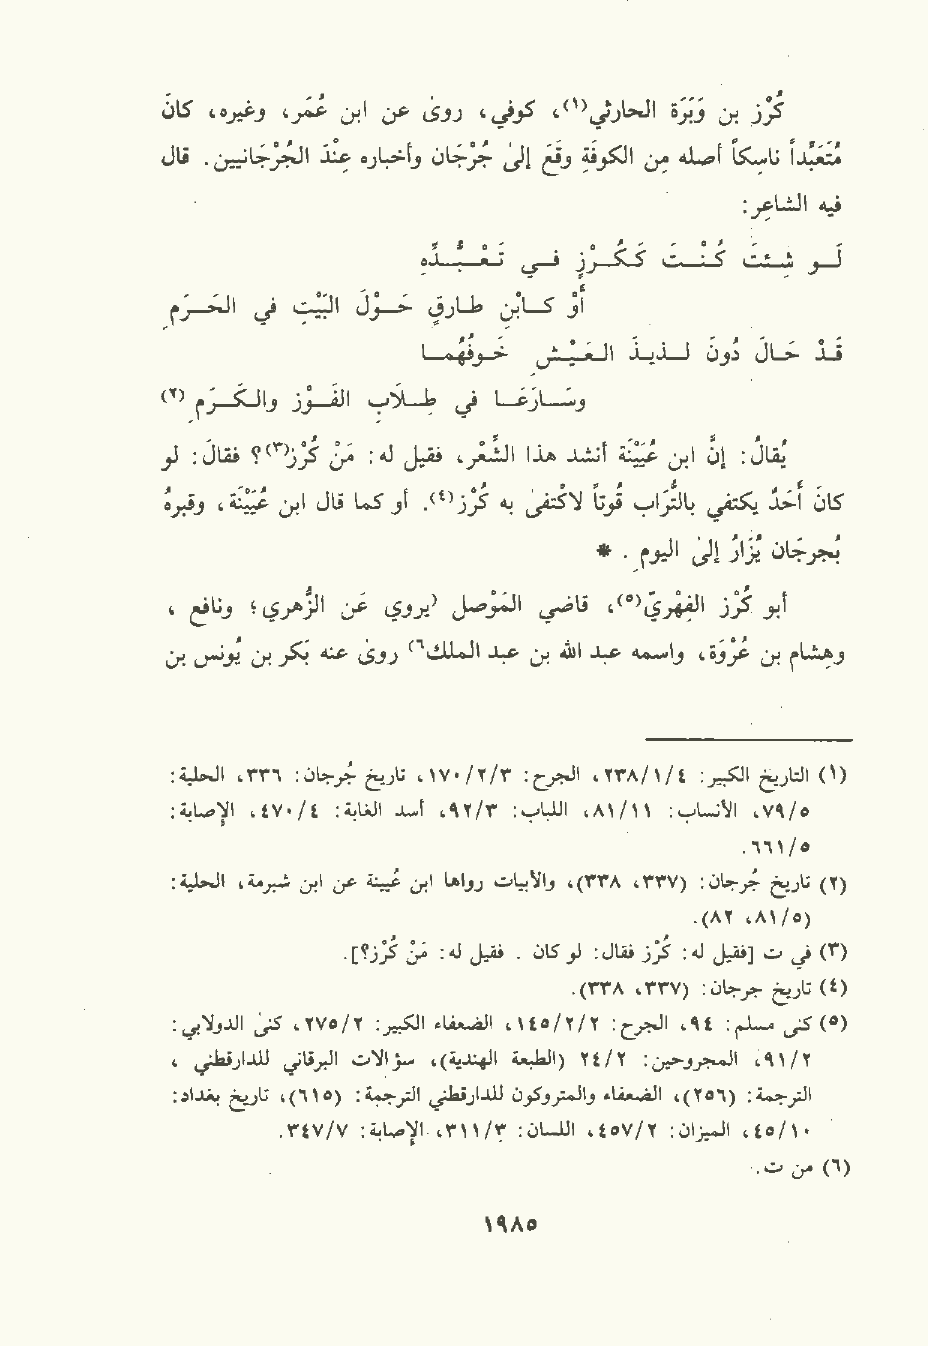 كُرْز بن وَبَرَة الحارثي(١)، كوفي، روىٰ عن ابن عُمَر، وغيره، كانَ
مُتَعَبِّداً ناسكاً أصله من الكوفَةِ وقَعَ إلىٰ جُرْجَان وأخباره عِنْدَ الجُرْجَانيين. قال
فيه الشاعِر:
لَو شِئتَ كُنْتَ كَكُرْزٍ في تَعْبُّدِهِ
أوْ كابْنِ طارِقٍ حَوْلَ البَيْتِ في الحَرَمِ
قَدْ حَالَ دُونَ لَذيذَ العَيْشِ خَوفُهُما
وسَارَعَا في طِلَابِ الفَوْزِ والكَرَمِ (٢)
يُقالُ: إنَّ ابن عُيَيْنَة أنشد هذا الشِّعْر، فقيل له: مَنْ كُرْز(٣)؟ فقالَ: لو
كانَ أحَدٌ يكتفي بالتُّرَاب قُوتاً لاكْتفىٰ به كُرْز(٤). أو كما قال ابن عُيَيْنَة، وقبرهُ
بُجرجَان يُزَارُ إلىٰ اليومِ. *
أبو كُرْز الفِهْريّ(٥)، قاضي المَوْصل (يروي عَن الزُّهري؛ ونافع ،
وهِشام بن عُرْوَة، واسمه عبد الله بن عبد الملك(٦ روىٰ عنه بَكر بن يُونس بن
(١) التاريخ الكبير: ٢٣٨/١/٤، الجرح: ١٧٠/٢/٣، تاريخ جُرجان: ٣٣٦، الحلية:
٧٩/٥، الأنساب: ٨١/١١، اللباب: ٩٢/٣، أسد الغابة: ٤٧٠/٤، الإصابة:
٦٦١/٥.
(٢) تاريخ جُرجان: (٣٣٧، ٣٣٨)، والأبيات رواها ابن عُيينة عن ابن شبرمة، الحلية:
(٨١/٥، ٨٢).
(٣) في ت [فقيل له: كُرْز فقال: لو كان . فقيل له: مَنْ كُرْز؟].
(٤) تاريخ جرجان: (٣٣٧، ٣٣٨).
(٥) كنى مسلم: ٩٤، الجرح: ١٤٥/٢/٢، الضعفاء الكبير: ٢٧٥/٢، كنىٰ الدولابي:
٩١/٢، المجروحين: ٢٤/٢ (الطبعة الهندية)، سؤالات البرقاني للدارقطني ،
الترجمة: (٢٥٦)، الضعفاء والمتروكون للدارقطني الترجمة: (٦١٥)، تاريخ بغداد:
٤٥/١٠، الميزان: ٤٥٧/٢، اللسان: ٣١١/٣، الإصابة: ٣٤٧/٧.
(٦) من ت.
١٩٨٥